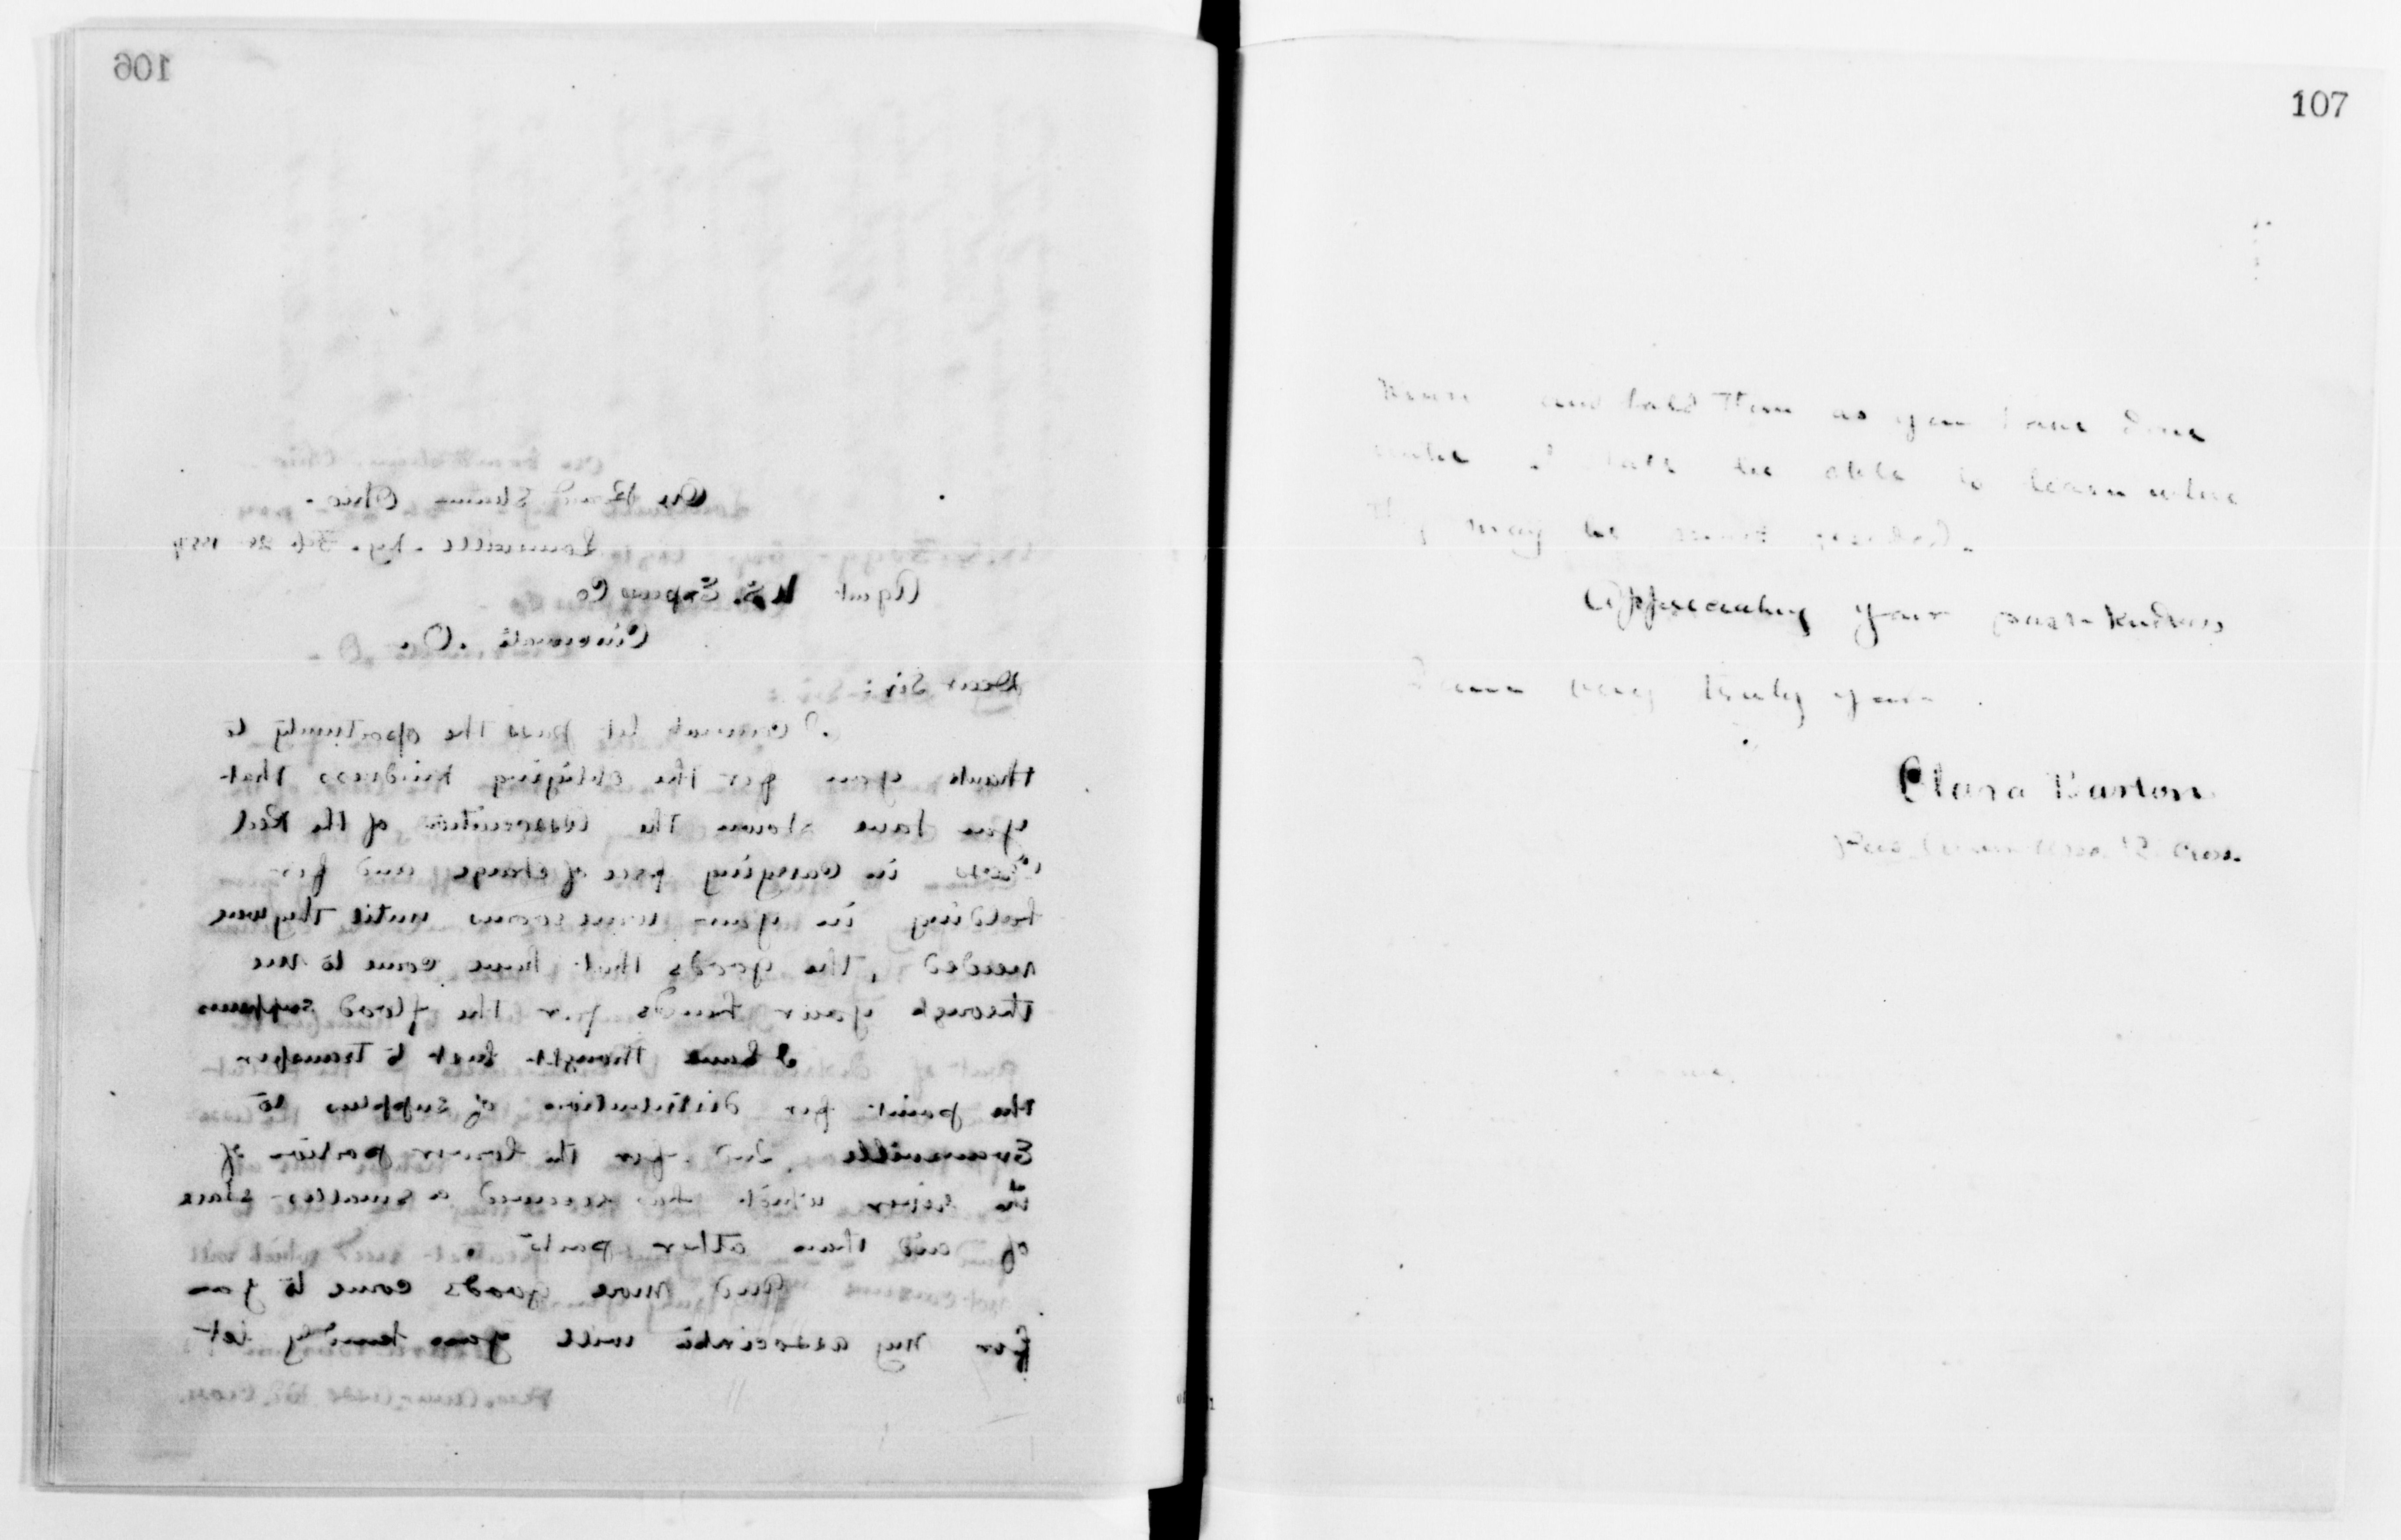 106
On Board Steamer Ohio.
Louisville. Ky. Feb 26 1884
Agent U.S. Express Co
Cincinnati. O.
Dear Sir:
I cannot let pass the opportunity to
thank you for the obliging kindness that
you have shown the Association of the Red
Cross in carrying free of charge and for
holding in your ware rooms until they were
needed, the goods that have come to me
through your hands for the flood
I have thought best to transfer
the point for distribution of supplies to
Evansville Ind. for the lower portion of
the river which has received a smaller share
of aid than other parts.
Should more goods come to you
for my association will you kindly let
107
and hold them as you have done
until I shall be able to learn where
they may be most needed.
Appreciating your past kindness
I am very truly yours
Clara Barton
Pres. Amer. Asso. R. Cross.